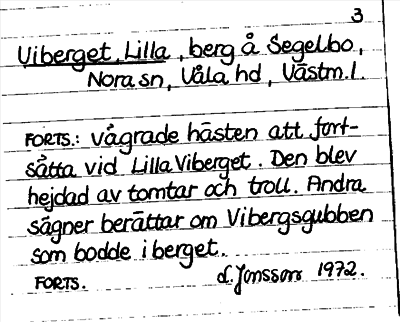 3
Viberget, Lilla, berg å Segelbo,
Nora sn, Våla hd, Västm.l.
FORTS.: vägrade hästen att fort-
sätta vid Lilla Viberget. Den blev
hejdad av tomtar och troll. Andra
sägner berättar om Vibergsgubben
som bodde i berget.
FORTS. L. Jonsson 1972.